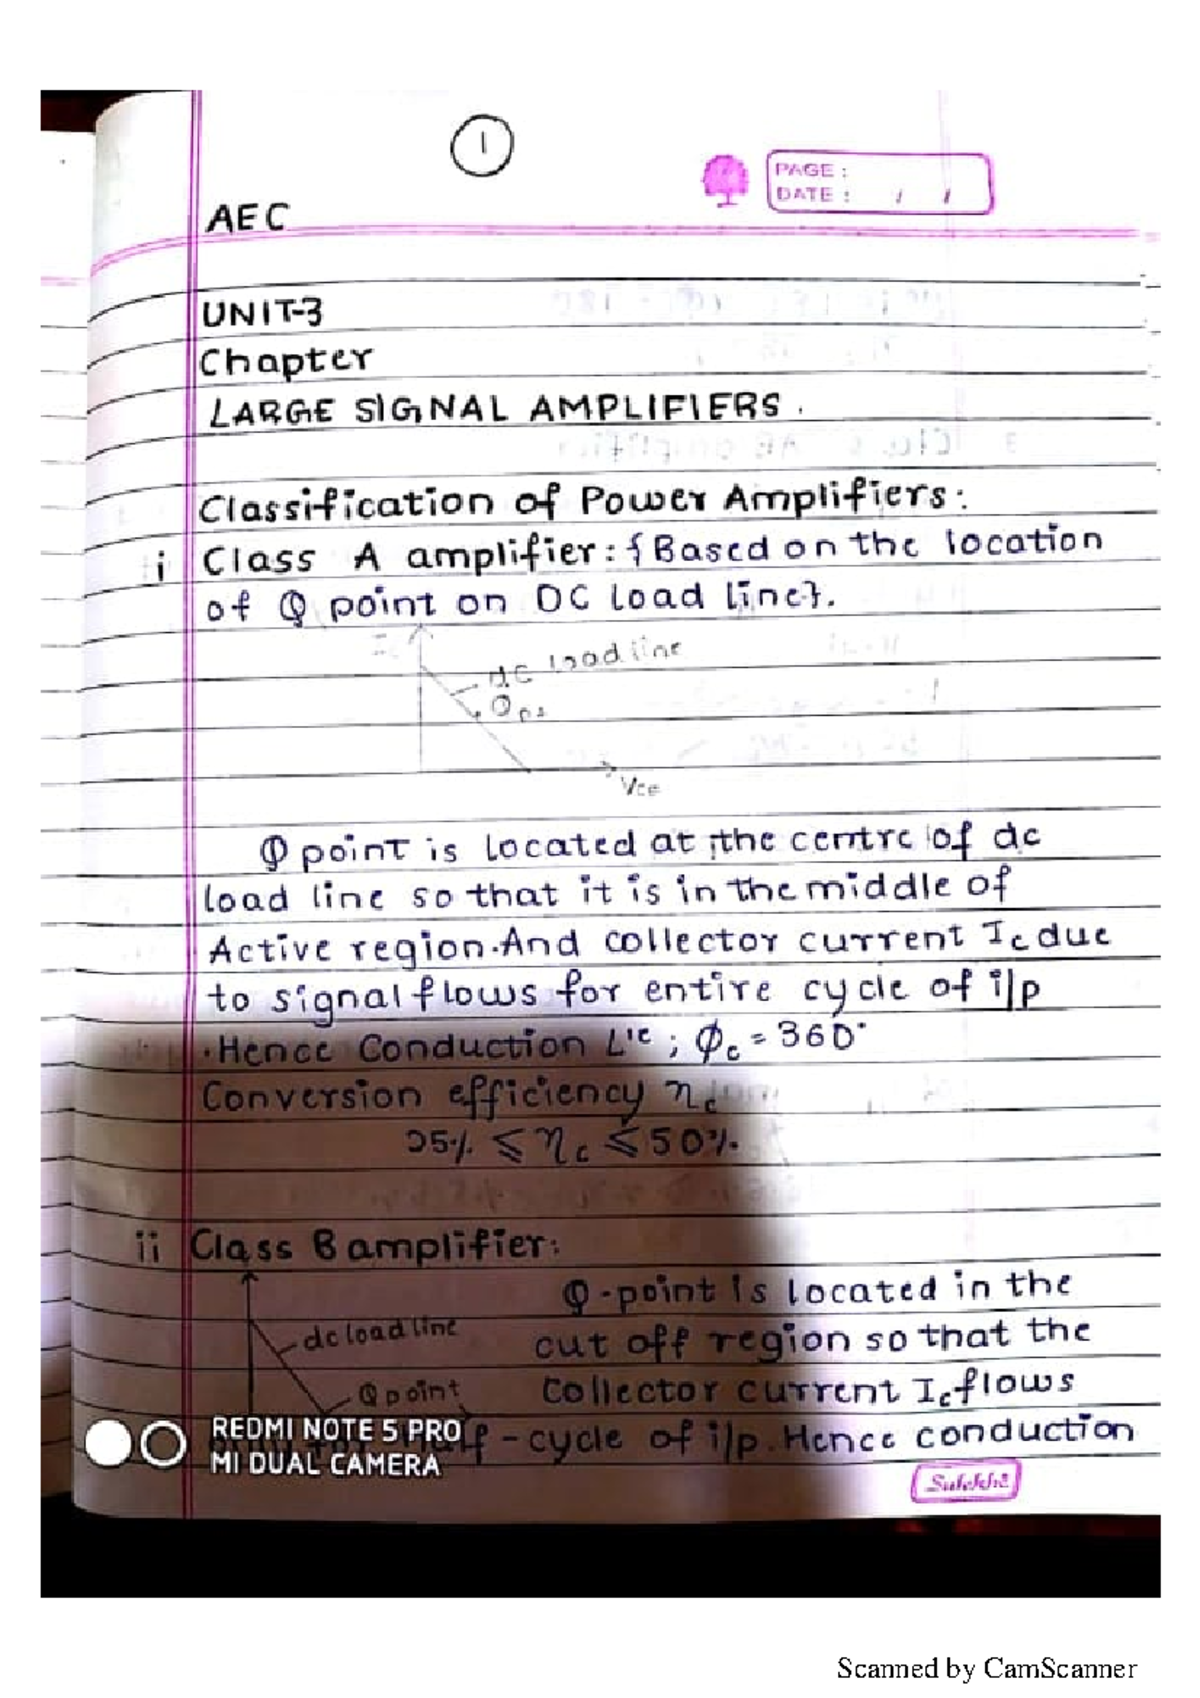 1
PAGE :
DATE : / /
AEC
UNIT-3
Chapter
LARGE SIGNAL AMPLIFIERS.
Classification of Power Amplifiers:
i Class A amplifier: {Based on the location
of Q point on DC load line}.
dc load line
Vce
Q point is located at the centre of dc
load line so that it is in the middle of
Active region. And collector current Ic due
to signal flows for entire cycle of i/p
. Hence Conduction L'e ; φc = 360°
Conversion efficiency ηc
25% ≤ ηc ≤ 50%.
ii Class B amplifier:
Q-point is located in the
dc load line
cut off region so that the
Q point
Collector current Ic flows
half-cycle of i/p. Hence conduction
REDMI NOTE 5 PRO
MI DUAL CAMERA
Scanned by CamScanner